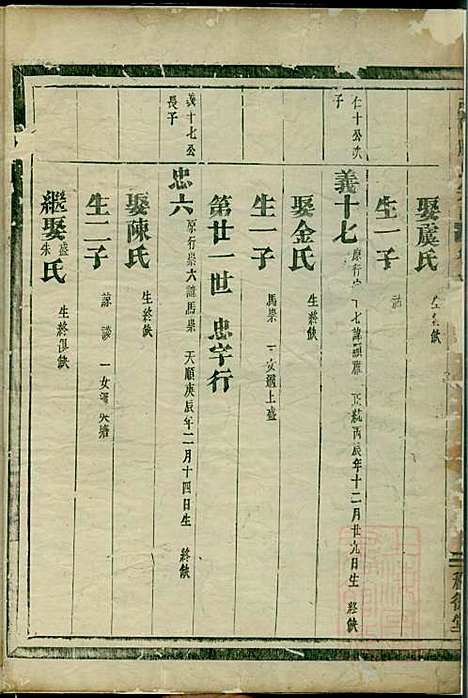 娶虞氏
生一子
仁十公次子
義十七 正統丙辰年十二月廿九日生 終缺
娶金氏 生終缺
生一子 馬崇 女適上盛
第廿一世 忠字行
義十七公長子
忠六 原行崇六諱馬崇 天順庚辰年二月十四日生 終缺
娶陳氏 生終缺
生二子 諒 談 一女適
繼娶盛朱氏 生終俱缺